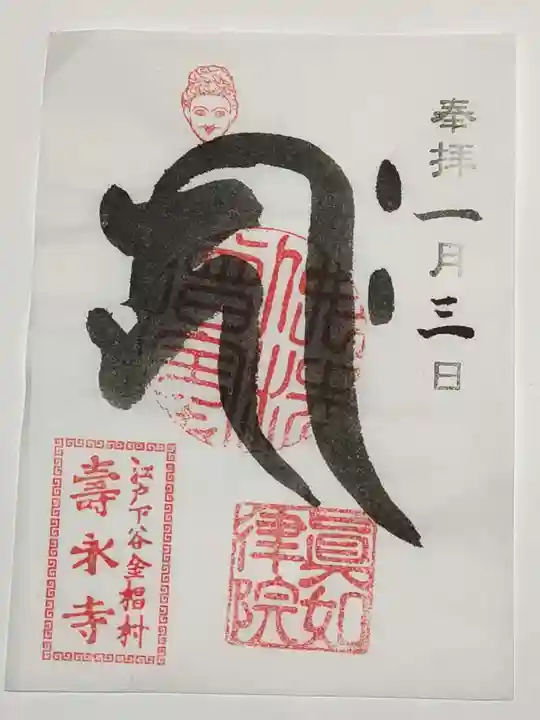 奉拝一月三日
江戸下谷金椙村
壽永寺
眞如
律院